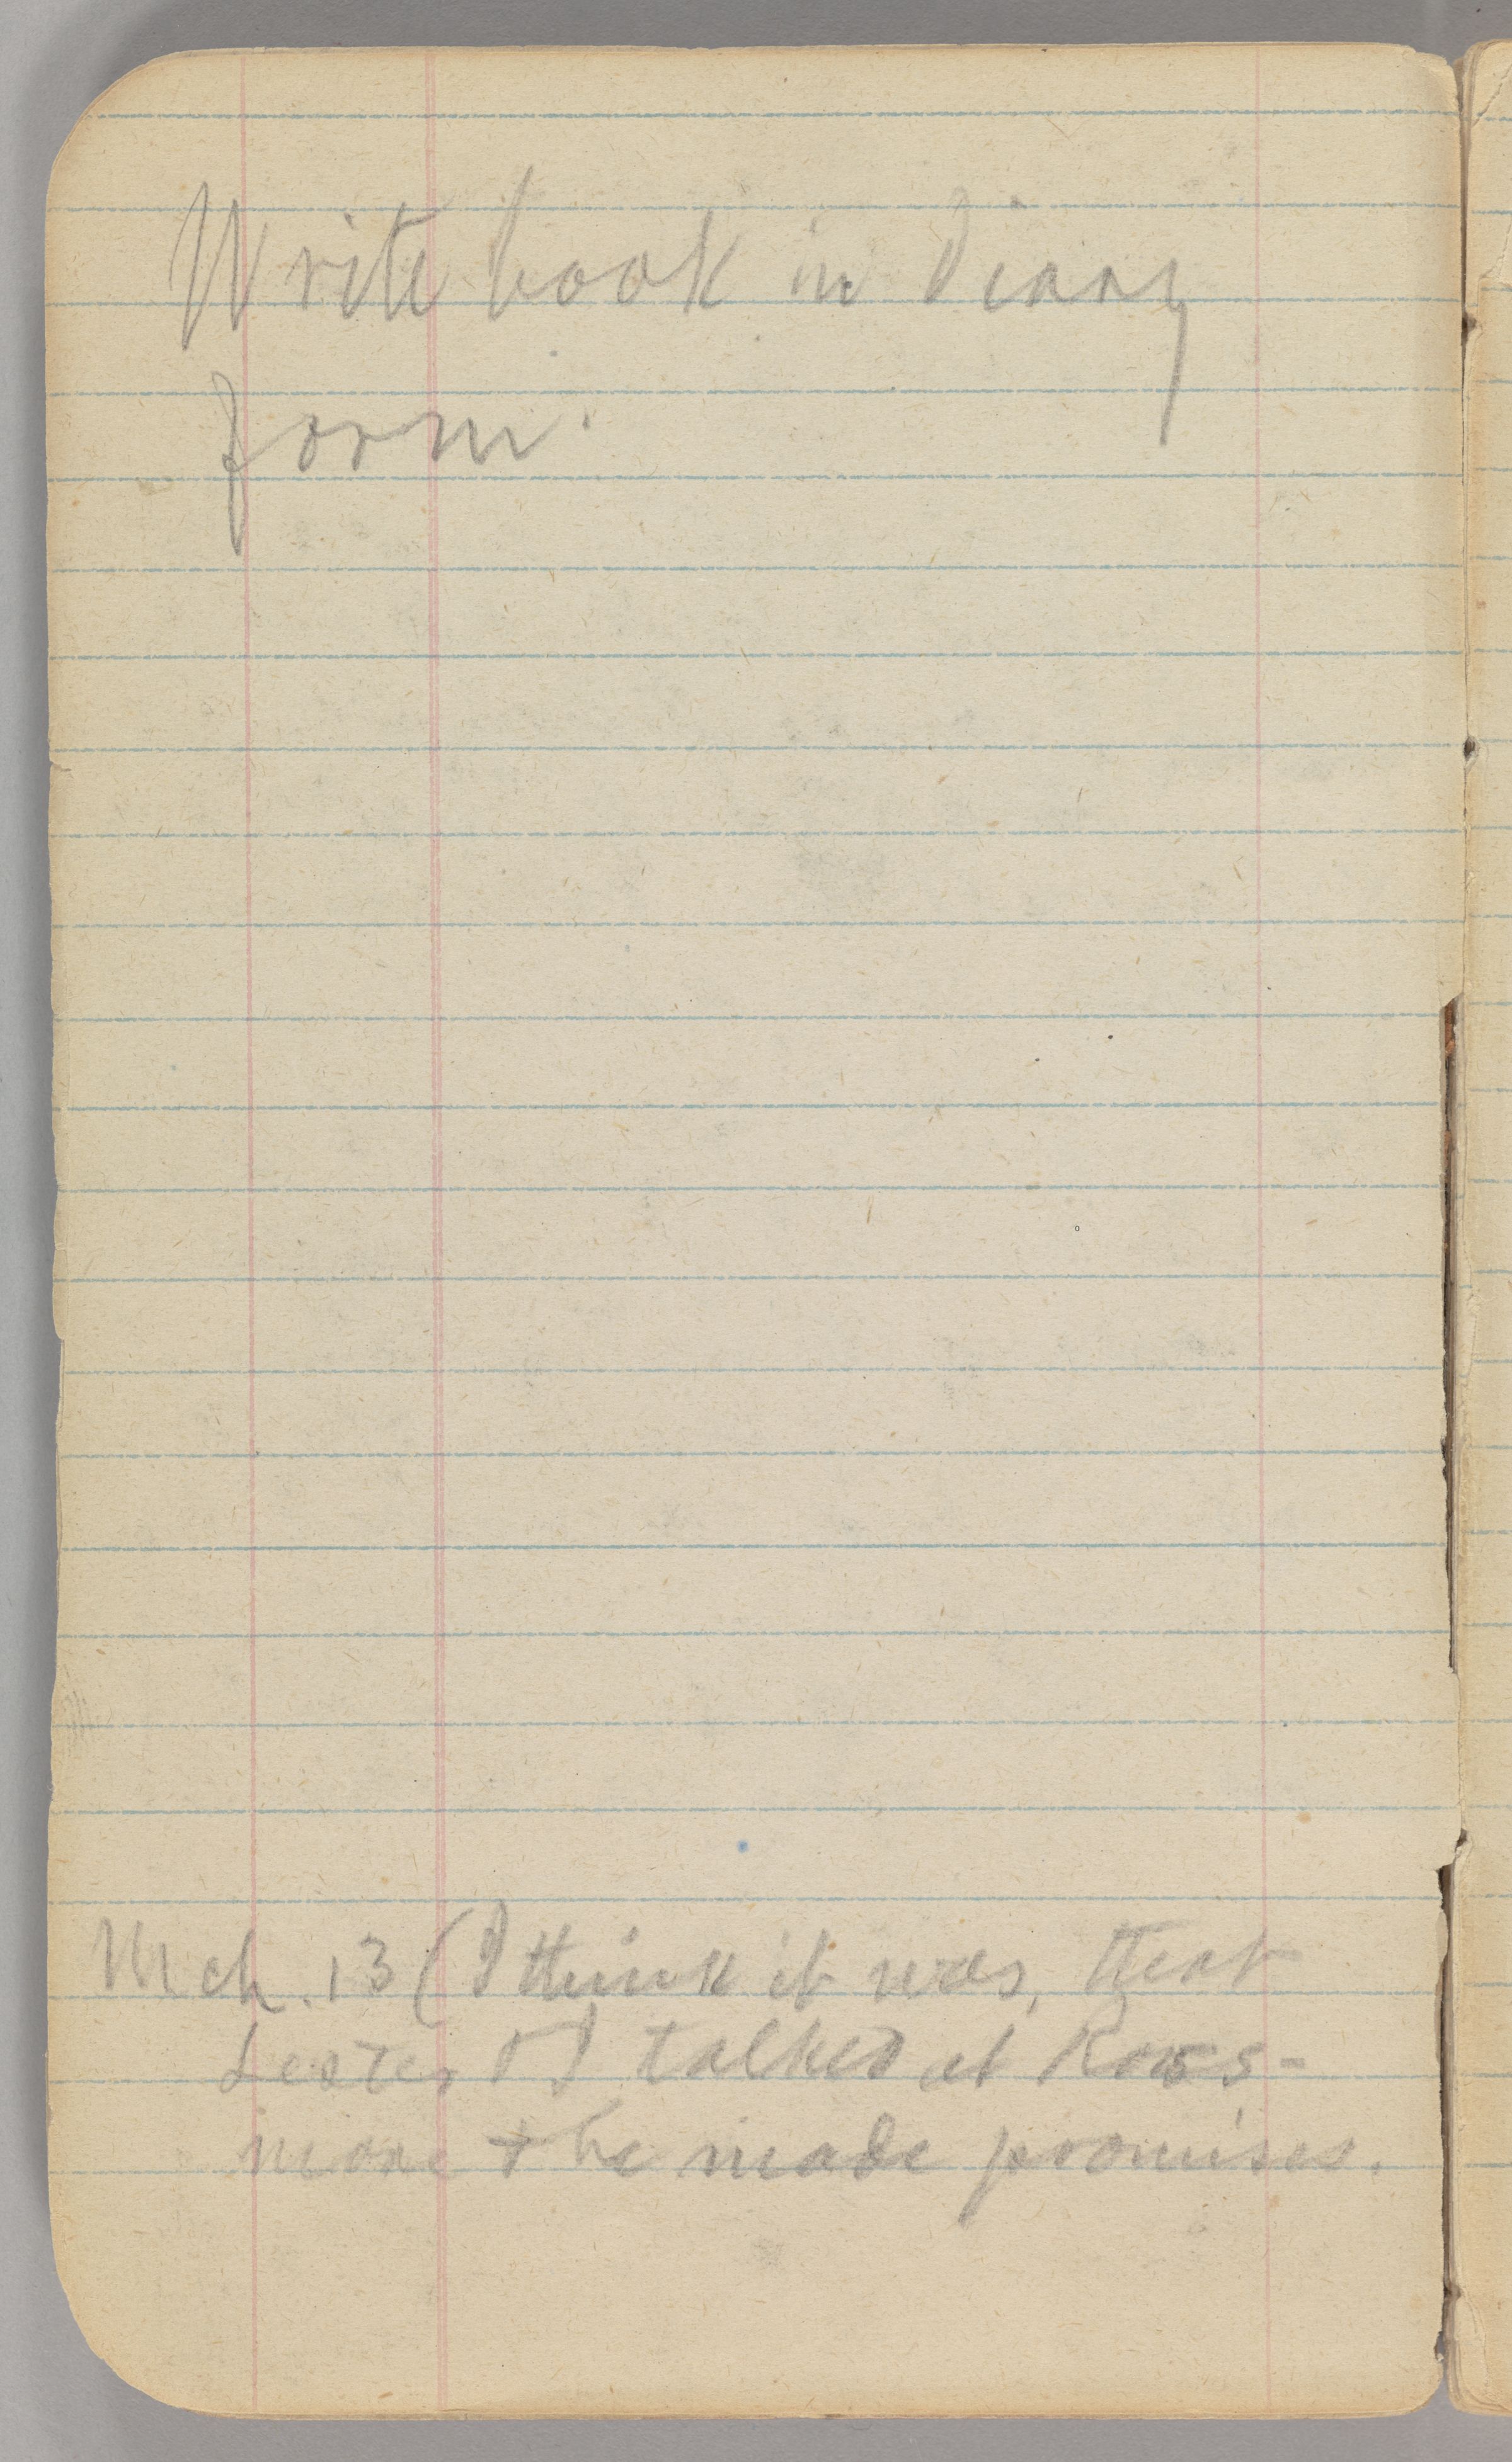 Write book in Diary
form.
Mch. 13 (I think it was, that
Lester & I talked at Ross-
more & he made promises.